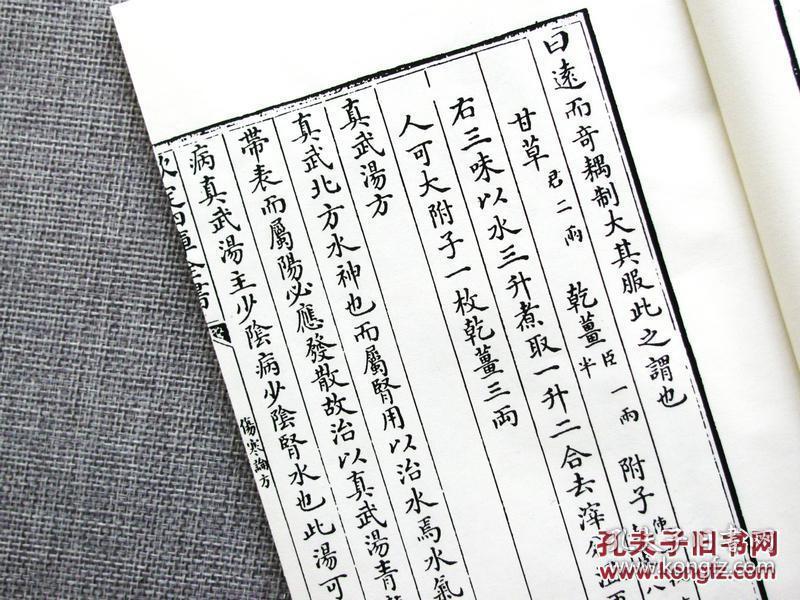 曰遠而奇耦制大其服此之謂也
甘草君二兩 乾薑臣一兩半 附子
右三味以水三升煮取一升二合去滓分溫再
人可大附子一枚乾薑三兩
真武湯方
真武北方水神也而屬腎用以治水焉水氣
帶表而屬陽必應發散故治以真武湯青龍
病真武湯主少陰病少陰腎水也此湯可
欽定四庫全書
傷寒論方
孔夫子旧书网